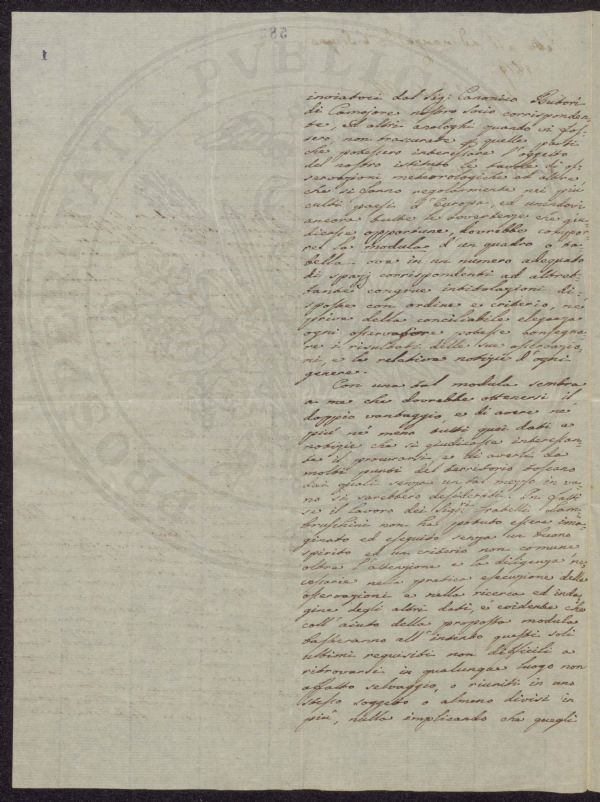 1
inviatoci dal Sig: Canonico Butori
di Camajore nostro Socio corrisponden-
te, ed altri analoghi quando vi fos-
sero, non trascurate quelle parti
che potessero interessare l'oggetto
del nostro istituto le tavole di os-
servazioni meteorologiche ed altre
che si fanno regolarmente nei più
culti paesi d'Europa, ed unendovi
ancora tutte le avvertenze che giu-
dicasse opportune, dovrebbe compor-
re la modula d'un quadro o ta-
bella ove in un numero adeguato
di spazj corrispondenti ad altret-
tante congrue intitolazioni di-
sposte con ordine e criterio, nè
prive della conciliabile eleganza
ogni osservatore potesse consegna-
re i risultati delle sue osservazio-
ni, e le relative notizie d'ogni
genere.
Con una tal modula sembra
a me che dovrebbe ottenersi il
doppio vantaggio, e di avere nè
più nè meno tutti quei dati e
notizie che si giudicasse interessan-
te il procurarsi, e di averli da
molti punti del territorio toscano
dai quali senza un tal mezzo in va-
no si sarebbero desiderati. In fatti
se il lavoro dei Sigri. Fratelli Lam-
bruschini non ha potuto essere imma-
ginato ed eseguito senza un buono
spirito ed un criterio non comune
oltre l'attenzione e la diligenza ne-
cessarie nella pratica esecuzione delle
osservazioni e nella ricerca ed inda-
gine degli altri dati, è evidente che
coll'aiuto della proposta modula
basteranno all'intento questi soli
ultimi requisiti non difficili a
ritrovarsi in qualunque luogo non
affatto selvaggio, o riuniti in uno
stesso soggetto o almeno divisi in
più, nulla implicando che quegli